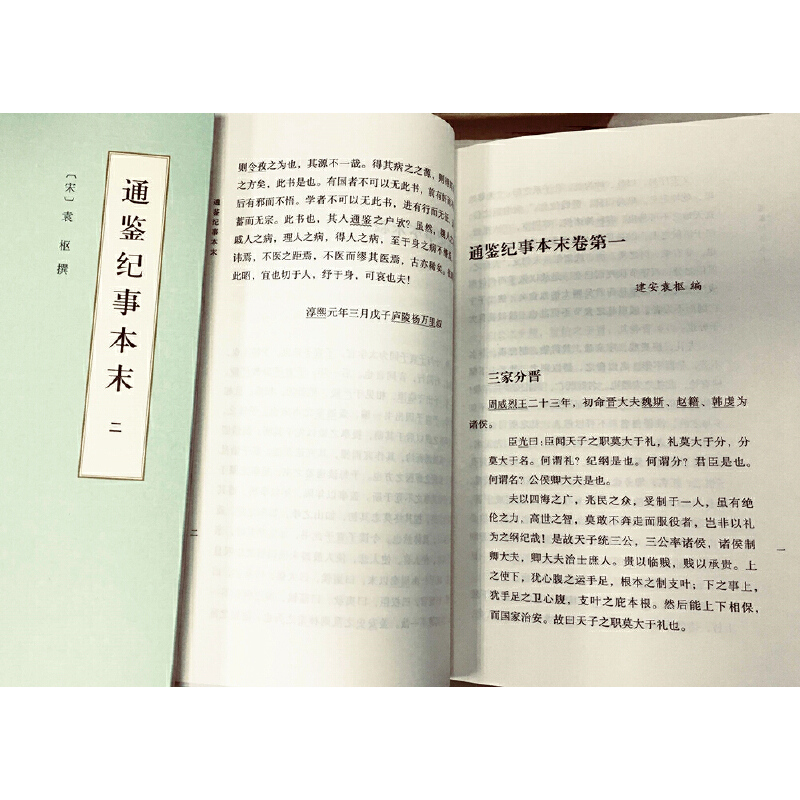 通鉴纪事本末 二
〔宋〕袁 枢 撰
通鉴纪事本末
则令孜之为也，其源不一哉。得其病之之源，则
之方矣，此书是也。有国者不可以无此书，前有
后有邪而不悟。学者不可以无此书，进有行而无
蓄而无宗。此书也，其人通鉴之户欤？虽然，
戚人之病，理人之病，得人之病，至于身之病不
讳焉，不医之距焉，不医而缪其医焉，古亦稀矣。
此昭，宜也切于人，纾于身，可哀也夫！
淳熙元年三月戊子庐陵杨万里叙
二
通鉴纪事本末卷第一
建安袁枢 编
三家分晋
周威烈王二十三年，初命晋大夫魏斯、赵籍、韩虔为
诸侯。
臣光曰：臣闻天子之职莫大于礼，礼莫大于分，分
莫大于名。何谓礼？纪纲是也。何谓分？君臣是也。
何谓名？公侯卿大夫是也。
夫以四海之广，兆民之众，受制于一人，虽有绝
伦之力，高世之智，莫敢不奔走而服役者，岂非以礼
为之纲纪哉！是故天子统三公，三公率诸侯，诸侯制
卿大夫，卿大夫治士庶人。贵以临贱，贱以承贵。上
之使下，犹心腹之运手足，根本之制支叶；下之事上，
犹手足之卫心腹，支叶之庇本根。然后能上下相保，
而国家治安。故曰天子之职莫大于礼也。
一